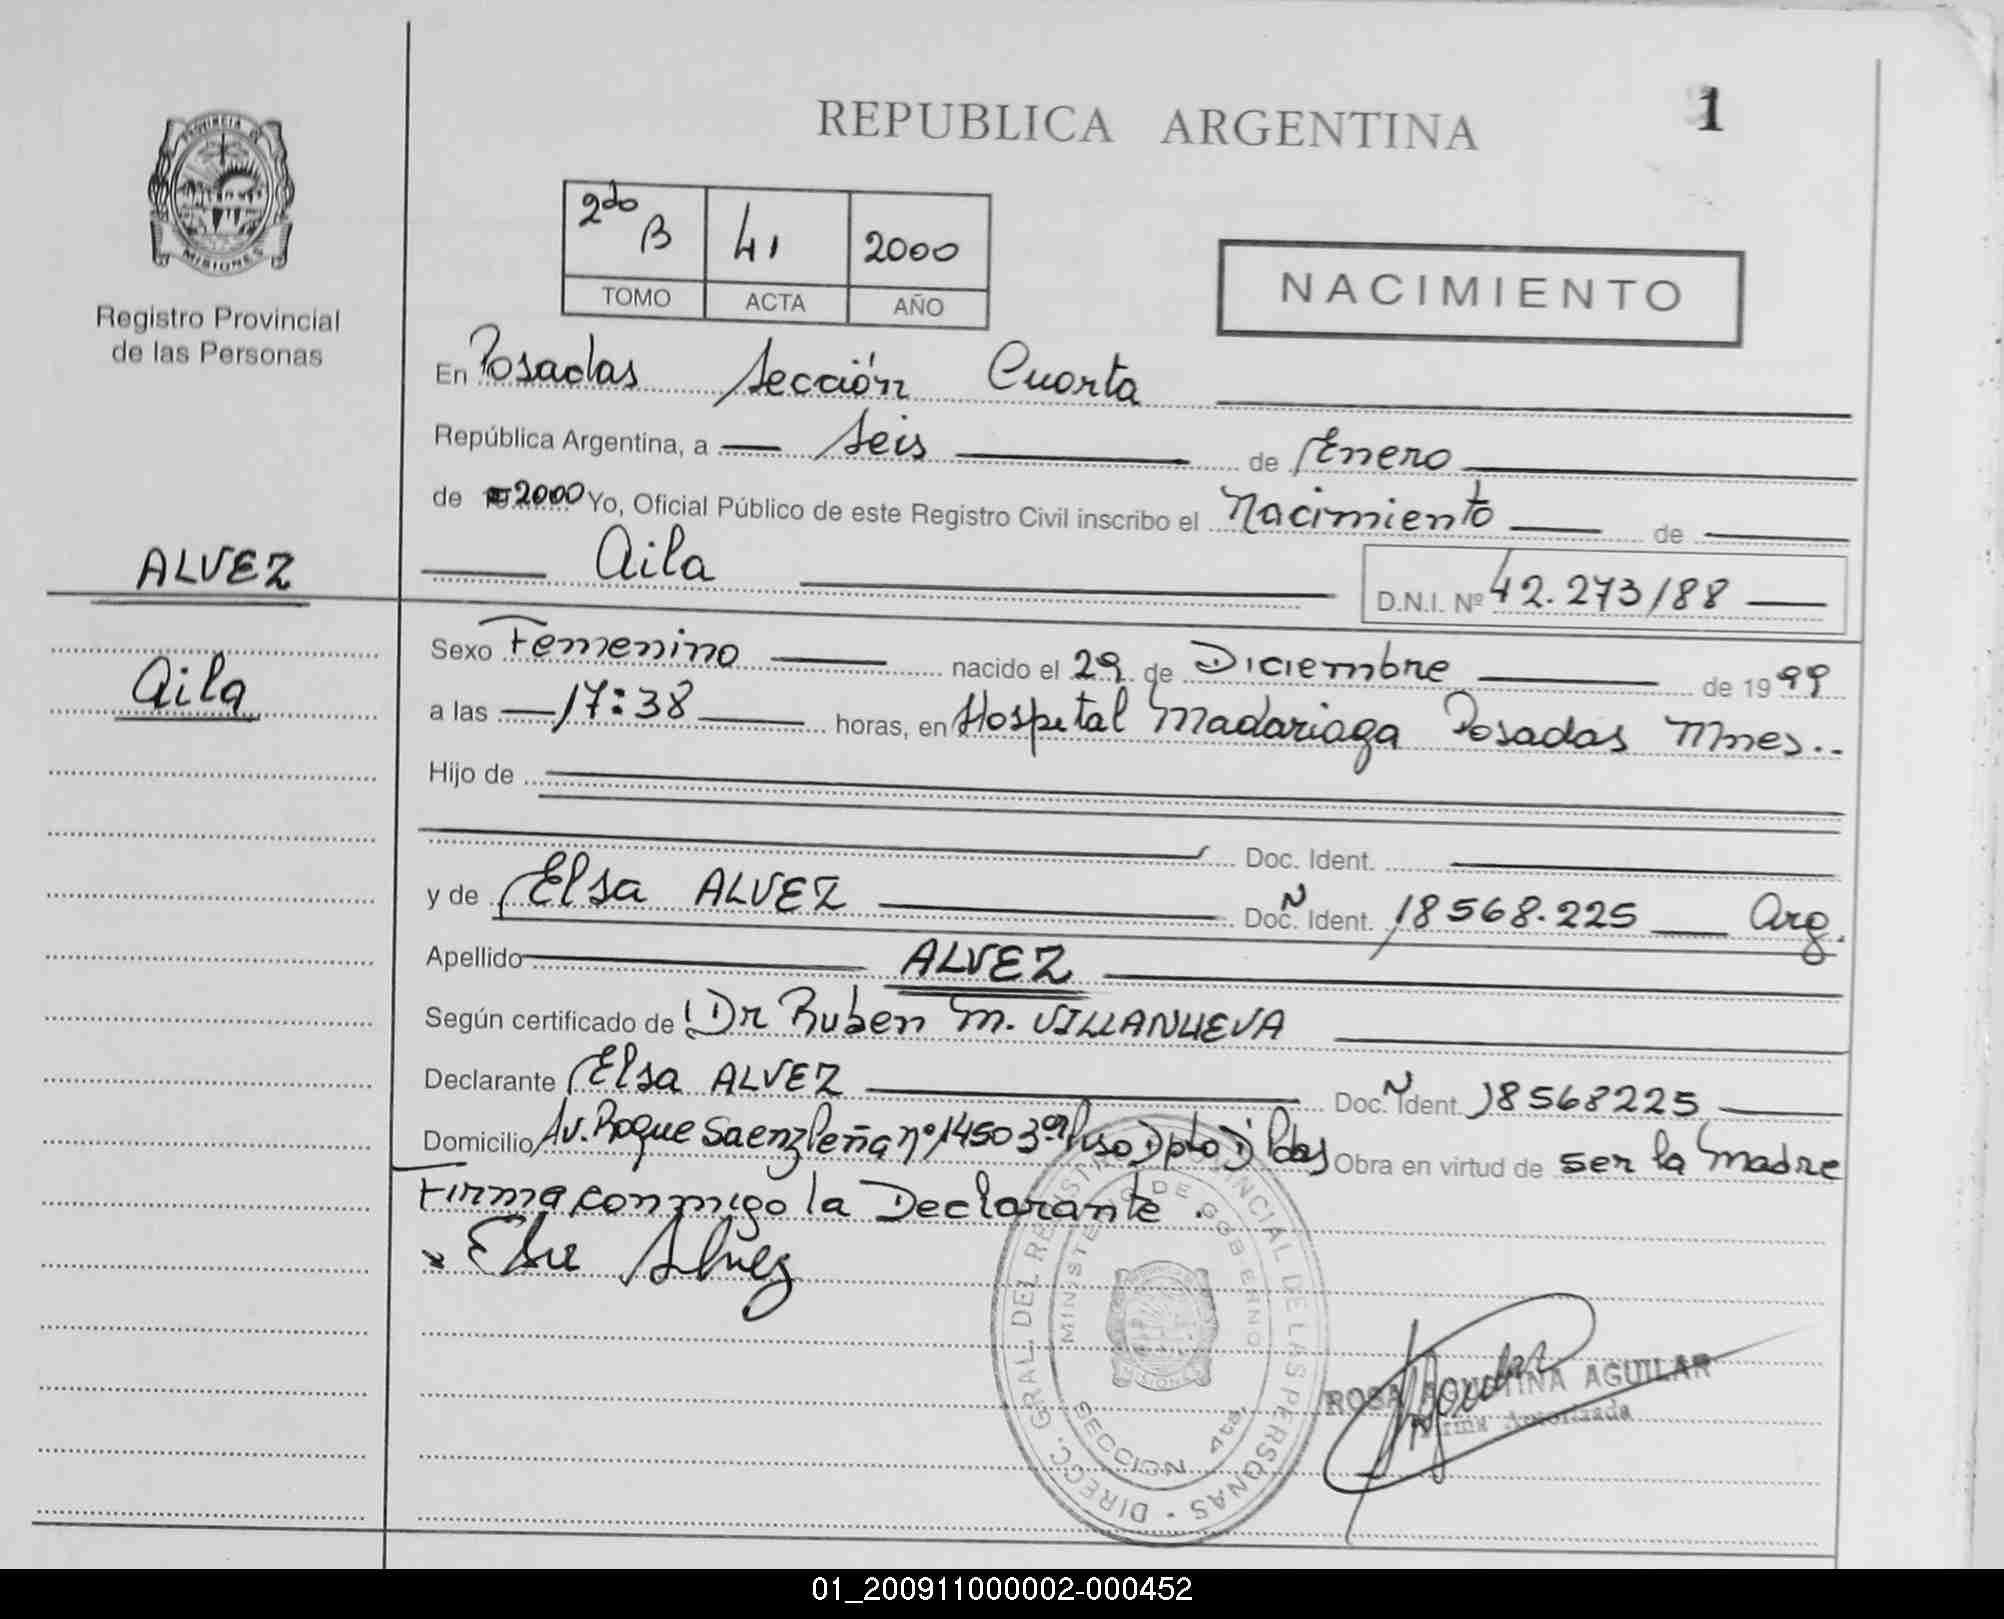 REPUBLICA ARGENTINA
1
PROVINCIA DE
MISIONES
Registro Provincial
de las Personas
2do B 41 2000
TOMO ACTA AÑO
NACIMIENTO
En Posadas Sección Cuarta
República Argentina, a Seis de Enero
de 2000 Yo, Oficial Público de este Registro Civil inscribo el Nacimiento de
ALVEZ
Aila
Aila
D.N.I. Nº 42.273/88
Sexo Femenino nacido el 29 de Diciembre de 1999
a las 17:38 horas, en Hospital Madariaga Posadas Mnes..
Hijo de
Doc. Ident.
y de Elsa ALVEZ Doc. N Ident. 18568.225 Arg.
Apellido ALVEZ
Según certificado de Dr Ruben M. VILLANUEVA
Declarante Elsa ALVEZ Doc. N Ident. 18568225
Domicilio Av. Roque Saenz Peña nº 1450 3er Piso Dpto D Pdas Obra en virtud de ser la Madre
Firma conmigo la Declarante.
Elsa Alvez
DIRECC. GRAL. DEL REGISTRO PROVINCIAL DE LAS PERSONAS
MINISTERIO DE GOBIERNO
SECCION 4ta.
MISIONES
ROSA AGUSTINA AGUILAR
Firma Autorizada
01_200911000002-000452